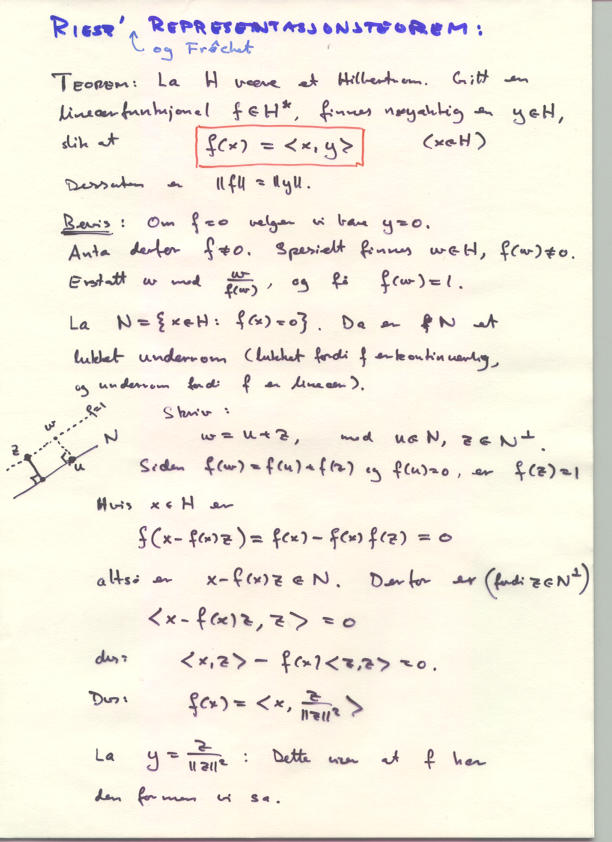 RIESZ' REPRESENTASJONSTEOREM:
og Fréchet
TEOREM: La H være et Hilbertrom. Gitt en
lineærfunksjonal f∈H*, finnes nøyaktig en y∈H,
slik at f(x) = <x, y> (x∈H)
Dessuten er ||f|| = ||y||.
Bevis: Om f=0 velger vi bare y=0.
Anta derfor f≠0. Spesielt finnes w∈H, f(w)≠0.
Erstatt w med w/f(w), og få f(w)=1.
La N={x∈H: f(x)=0}. Da er N et
lukket underrom (lukket fordi f er kontinuerlig,
og underrom fordi f er lineær).
Skriv:
w = u+z, med u∈N, z∈N⊥.
Siden f(w)=f(u)+f(z) og f(u)=0, er f(z)=1
w
f=1
N
z
u
Hvis x∈H er
f(x-f(x)z) = f(x)-f(x)f(z) = 0
altså er x-f(x)z ∈ N. Derfor er (fordi z∈N⊥)
<x-f(x)z, z> = 0
dvs: <x,z> - f(x)<z,z> = 0.
Dvs: f(x) = <x, z/||z||²>
La y = z/||z||² : Dette viser at f har
den formen vi sa.